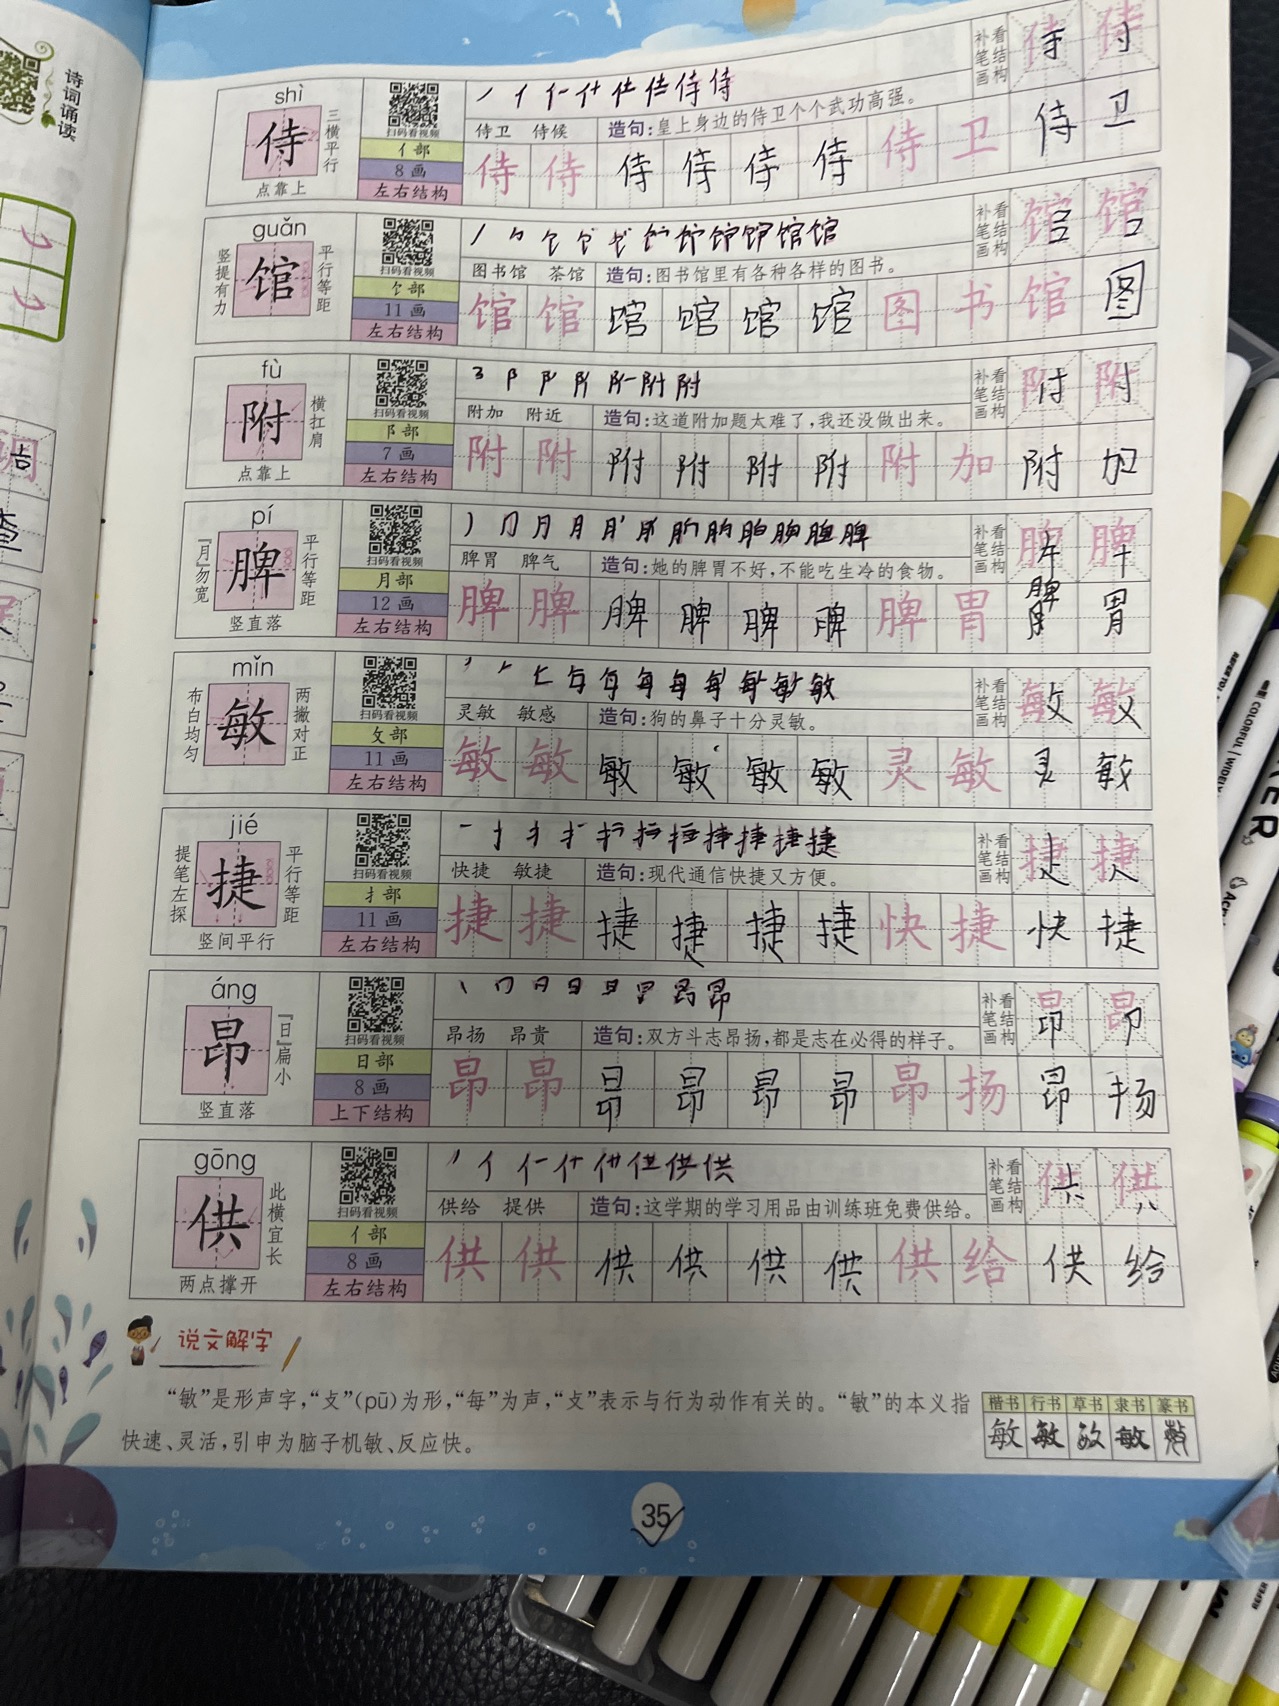 诗词诵读
shì
侍
三横平行
点靠上
扫码看视频
亻部
8画
左右结构
侍卫 侍候 造句:皇上身边的侍卫个个武功高强。
补笔画 看结构
侍 侍 侍 侍 侍 侍 侍 卫 侍 卫
guǎn
馆
竖提有力
平行等距
扫码看视频
饣部
11画
左右结构
图书馆 茶馆 造句:图书馆里有各种各样的图书。
补笔画 看结构
馆 馆
馆 馆 馆 馆 馆 馆 图 书 馆 图
fù
附
横扛肩
点靠上
扫码看视频
阝部
7画
左右结构
附加 附近 造句:这道附加题太难了,我还没做出来。
补笔画 看结构
附 附
附 附 附 附 附 附 附 加 附 加
pí
脾
『月』勿宽
平行等距
竖直落
扫码看视频
月部
12画
左右结构
脾胃 脾气 造句:她的脾胃不好,不能吃生冷的食物。
补笔画 看结构
脾 脾
脾 脾 脾 脾 脾 脾 脾 胃 脾 胃
mǐn
敏
布白均匀
两撇对正
扫码看视频
攵部
11画
左右结构
灵敏 敏感 造句:狗的鼻子十分灵敏。
补笔画 看结构
敏 敏
敏 敏 敏 敏 敏 敏 灵 敏 灵 敏
jié
捷
提笔左探
平行等距
竖间平行
扫码看视频
扌部
11画
左右结构
快捷 敏捷 造句:现代通信快捷又方便。
补笔画 看结构
捷 捷
捷 捷 捷 捷 捷 捷 快 捷 快 捷
áng
昂
『日』扁小
竖直落
扫码看视频
日部
8画
上下结构
昂扬 昂贵 造句:双方斗志昂扬,都是志在必得的样子。
补笔画 看结构
昂 昂
昂 昂 昂 昂 昂 昂 昂 扬 昂 扬
gōng
供
此横宜长
两点撑开
扫码看视频
亻部
8画
左右结构
供给 提供 造句:这学期的学习用品由训练班免费供给。
补笔画 看结构
供 供
供 供 供 供 供 供 供 给 供 给
说文解字
“敏”是形声字,“攴”(pū)为形,“每”为声,“攴”表示与行为动作有关的。“敏”的本义指
快速、灵活,引申为脑子机敏、反应快。
楷书 行书 草书 隶书 篆书
敏 敏 敏 敏 敏
35